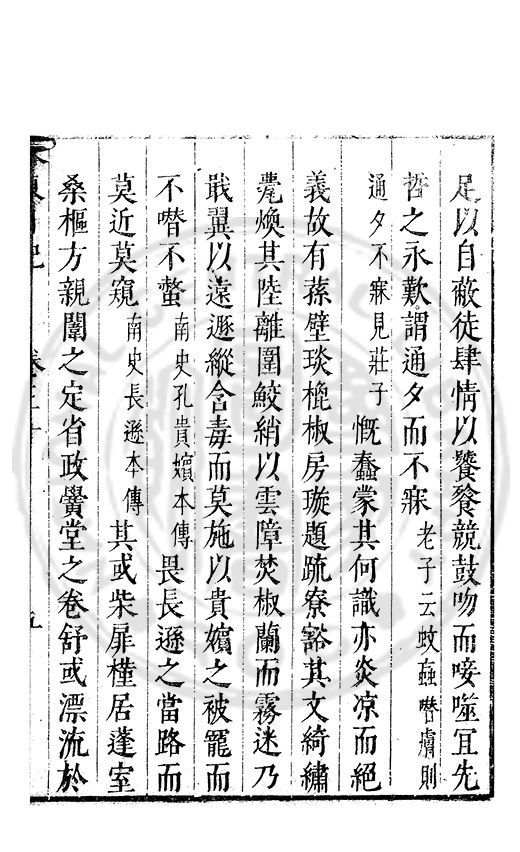 足以自蔽徒肆情以饕餮競鼓吻而唼噬宜先
哲之永歎謂通夕而不寐老子云蚊蝱噆膚則
通夕不寐見莊子慨蠢蒙其何識亦炎凉而絕
義故有蓀壁琰榥椒房璇題疏寮豁其文綺繡
甍煥其陸離圍鮫綃以雲障焚椒蘭而霧迷乃
戢翼以遠遯縱含毒而莫施以貴嬪之被罷而
不噆不螫南史孔貴嬪本傳畏長遜之當路而
莫近莫窺南史長遜本傳其或柴扉槿居蓬室
桑樞方親闈之定省政黌堂之卷舒或漂流於
五